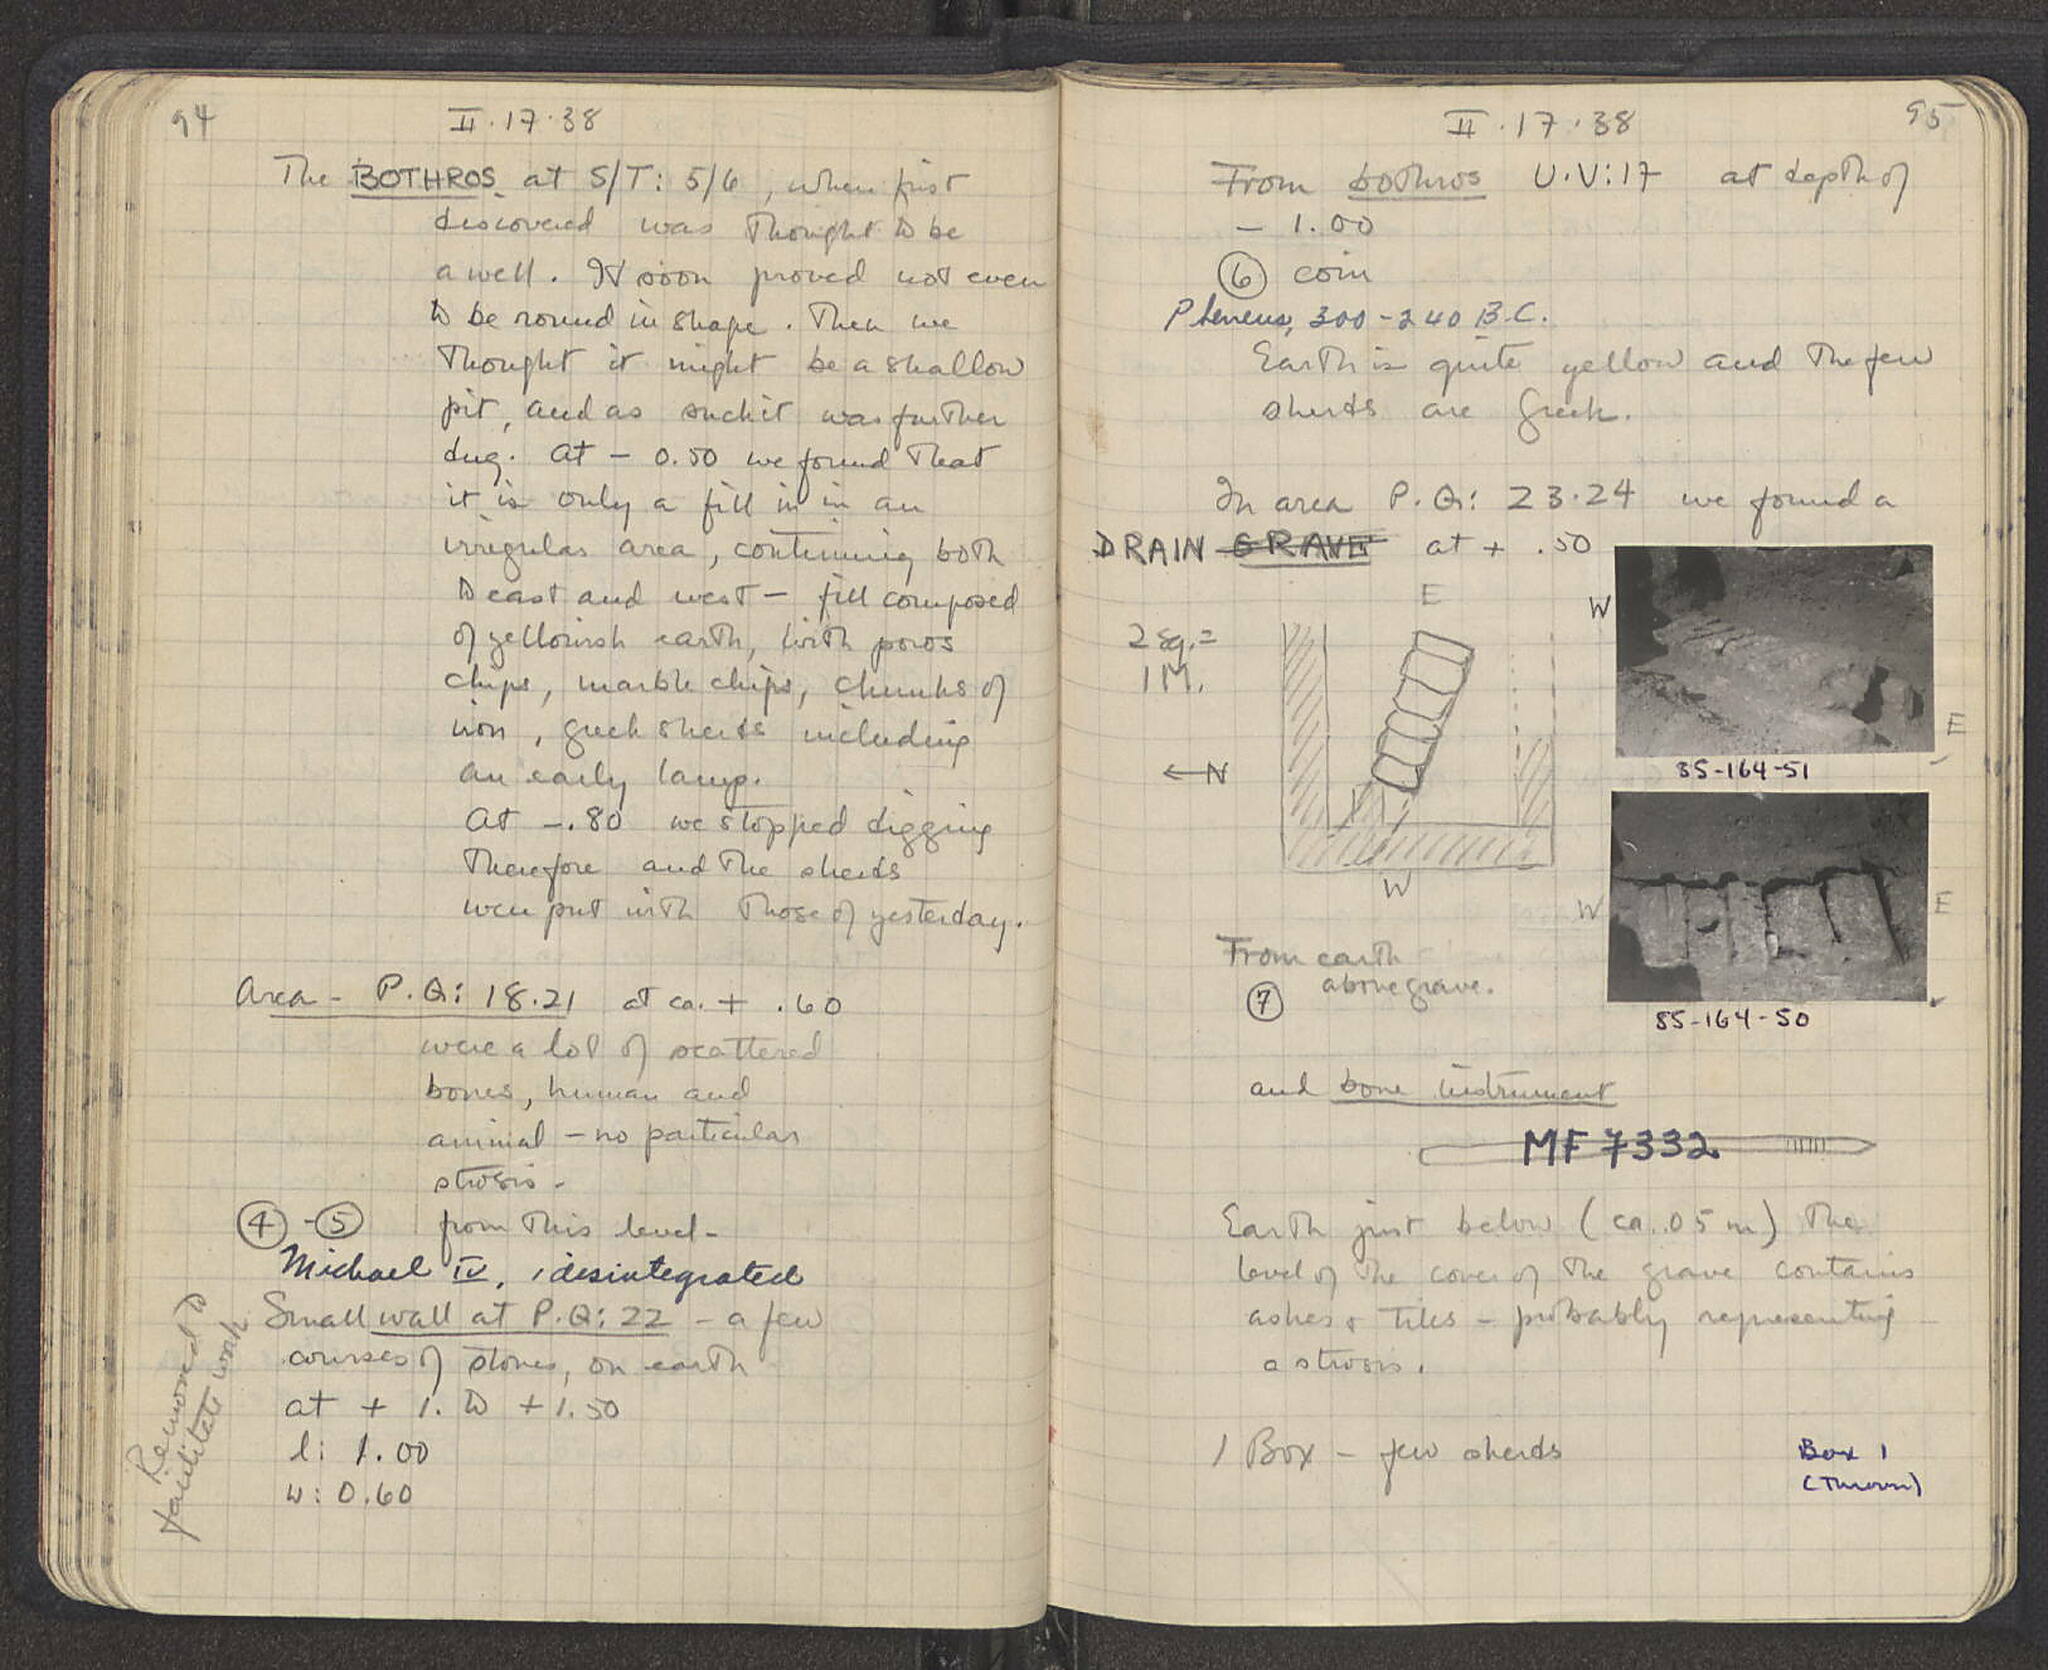 94
II.17.38
The BOTHROS at S/T: 5/6, when first
discovered was thought to be
a well. It soon proved not even
to be round in shape. Then we
thought it might be a shallow
pit, and as such it was further
dug. At - 0.50 we found that
it is only a fill in in an
irregular area, continuing both
to east and west - fill composed
of yellowish earth, with poros
chips, marble chips, chunks of
iron, greek sherds including
an early lamp.
At -.80 we stopped digging
therefore and the sherds
were put with those of yesterday.
Area - P.Q: 18.21 at ca. + .60
were a lot of scattered
bones, human and
animal - no particular
strosis -
④-⑤ from this level -
Michael IV, 1 desintegrated
Small wall at P.Q: 22 - a few
courses of stones, on earth
at + 1. to + 1.50
l: 1.00
w: 0.60
Removed to
facilitate work
95
II.17.38
From bothros U.V:17 at depth of
- 1.00
⑥ coin
Pheneus, 300-240 B.C.
Earth is quite yellow and the few
sherds are Greek.
In area P.Q: 23.24 we found a
DRAIN GRAVE at + .50
E
2 sq. =
1 M.
← N
W
W
E
85-164-51
W
E
85-164-50
From earth
above grave.
⑦
and bone instrument
MF 7332
Earth just below (ca. .05 m) the
level of the cover of the grave contains
ashes & tiles - probably representing
a strosis.
1 Box - few sherds
Box 1
(Thrown)